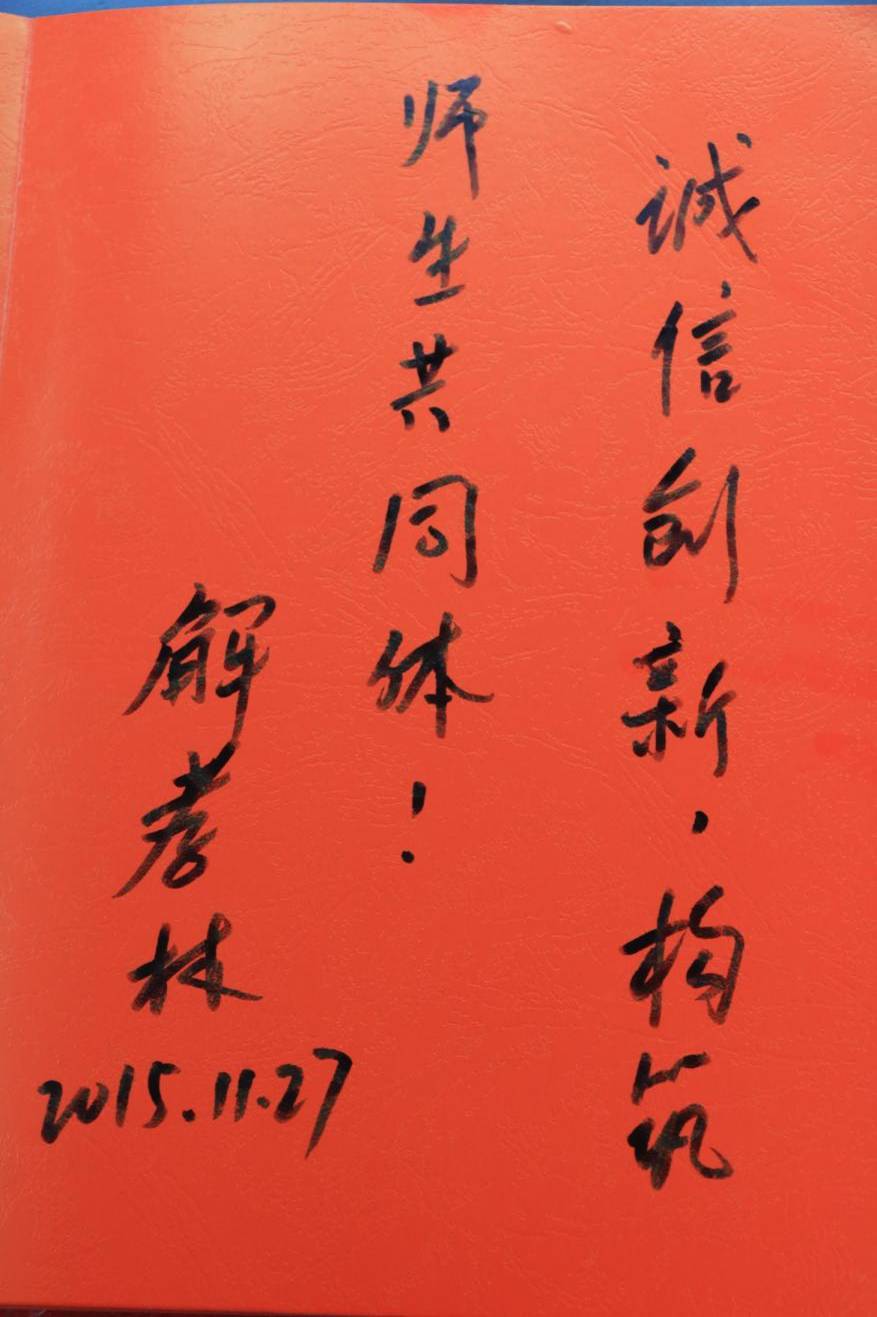 诚信创新，构筑
师生共同体！
解孝林
2015.11.27